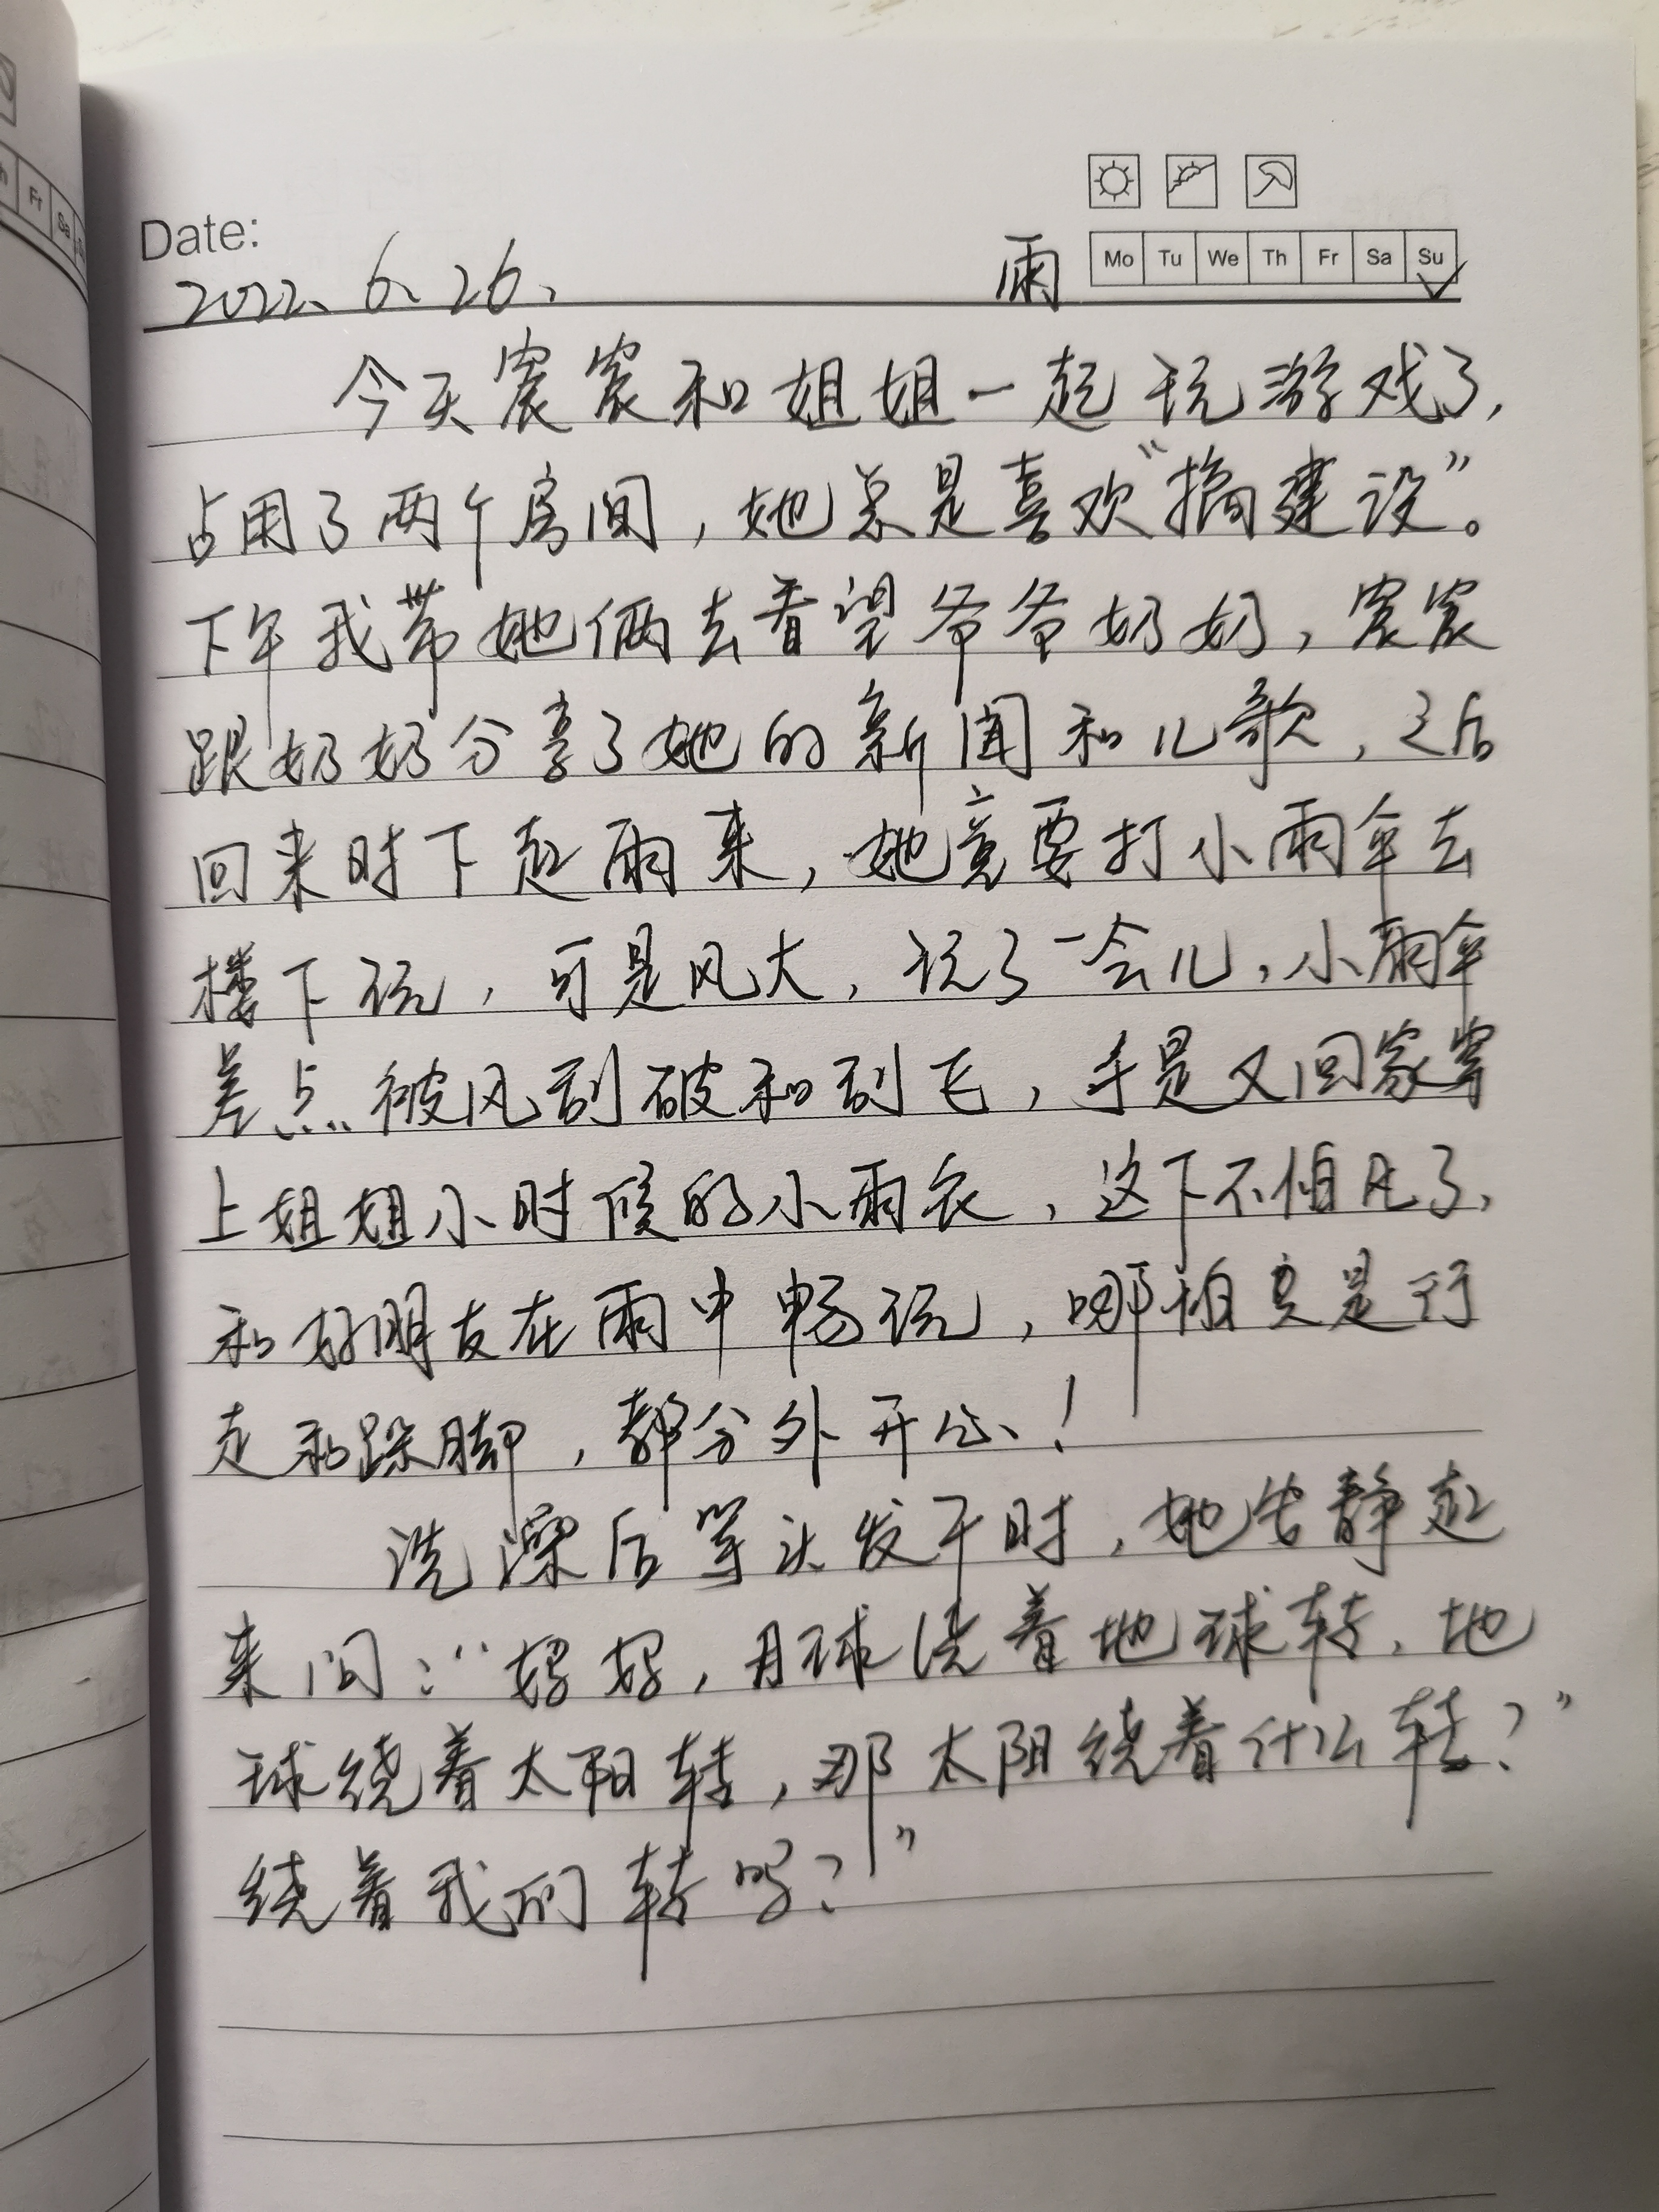 Date:
2022.6.26.
雨
Mo Tu We Th Fr Sa Su
Fr Sa
今天宸宸和姐姐一起玩游戏了,
占用了两个房间,她总是喜欢“搞建设”。
下午我带她俩去看望爷爷奶奶,宸宸
跟奶奶分享了她的新闻和儿歌,之后
回来时下起雨来,她竟要打小雨伞去
楼下玩,可是风大,玩了一会儿,小雨伞
差点被风刮破和刮飞,于是又回家穿
上姐姐小时候的小雨衣,这下不怕风了,
和好朋友在雨中畅玩,哪怕只是行
走和跺脚,都分外开心!
洗澡后等头发干时,她安静起
来问:“妈妈,月球绕着地球转,地
球绕着太阳转,那太阳绕着什么转?”
绕着我们转吗?”